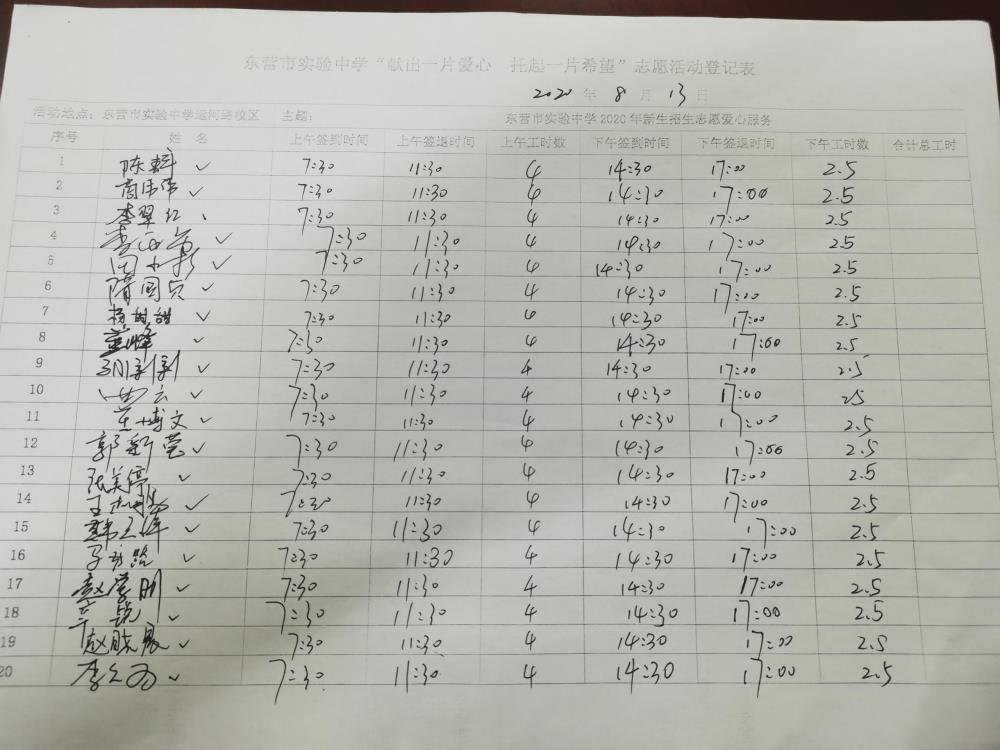 东营市实验中学“献出一片爱心 托起一片希望”志愿活动登记表
2020 年 8 月 13 日
活动地点：东营市实验中学运河路校区 主题： 东营市实验中学2020年新生招生志愿爱心服务
序号 姓 名 上午签到时间 上午签退时间 上午工时数 下午签到时间 下午签退时间 下午工时数 合计总工时
1 陈 ✓ 7:30 11:30 4 14:30 17:00 2.5
2 商伟伟 ✓ 7:30 11:30 4 14:30 17:00 2.5
3 李翠红 7:30 11:30 4 14:30 17:00 2.5
4 李 ✓ 7:30 11:30 4 14:30 17:00 2.5
5 田小彬 ✓ 7:30 11:30 4 14:30 17:00 2.5
6 隋国贞 ✓ 7:30 11:30 4 14:30 17:00 2.5
7 杨甜甜 ✓ 7:30 11:30 4 14:30 17:00 2.5
8 峰 ✓ 7:30 11:30 4 14:30 17:00 2.5
9 ✓ 7:30 11:30 4 14:30 17:00 2.5
10 云 ✓ 7:30 11:30 4 14:30 17:00 25
11 董博文 ✓ 7:30 11:30 4 14:30 17:00 2.5
12 郭新莹 ✓ 7:30 11:30 4 14:30 17:00 2.5
13 张美婷 ✓ 7:30 11:30 4 14:30 17:00 2.5
14 王 ✓ 7:30 11:30 4 14:30 17:00 2.5
15 韩 ✓ 7:30 11:30 4 14:30 17:00 2.5
16 ✓ 7:30 11:30 4 14:30 17:00 2.5
17 赵 明 ✓ 7:30 11:30 4 14:30 17:00 2.5
18 ✓ 7:30 11:30 4 14:30 17:00 2.5
19 赵晓晨 ✓ 7:30 11:30 4 14:30 17:00 2.5
20 李 ✓ 7:30 11:30 4 14:30 17:00 2.5